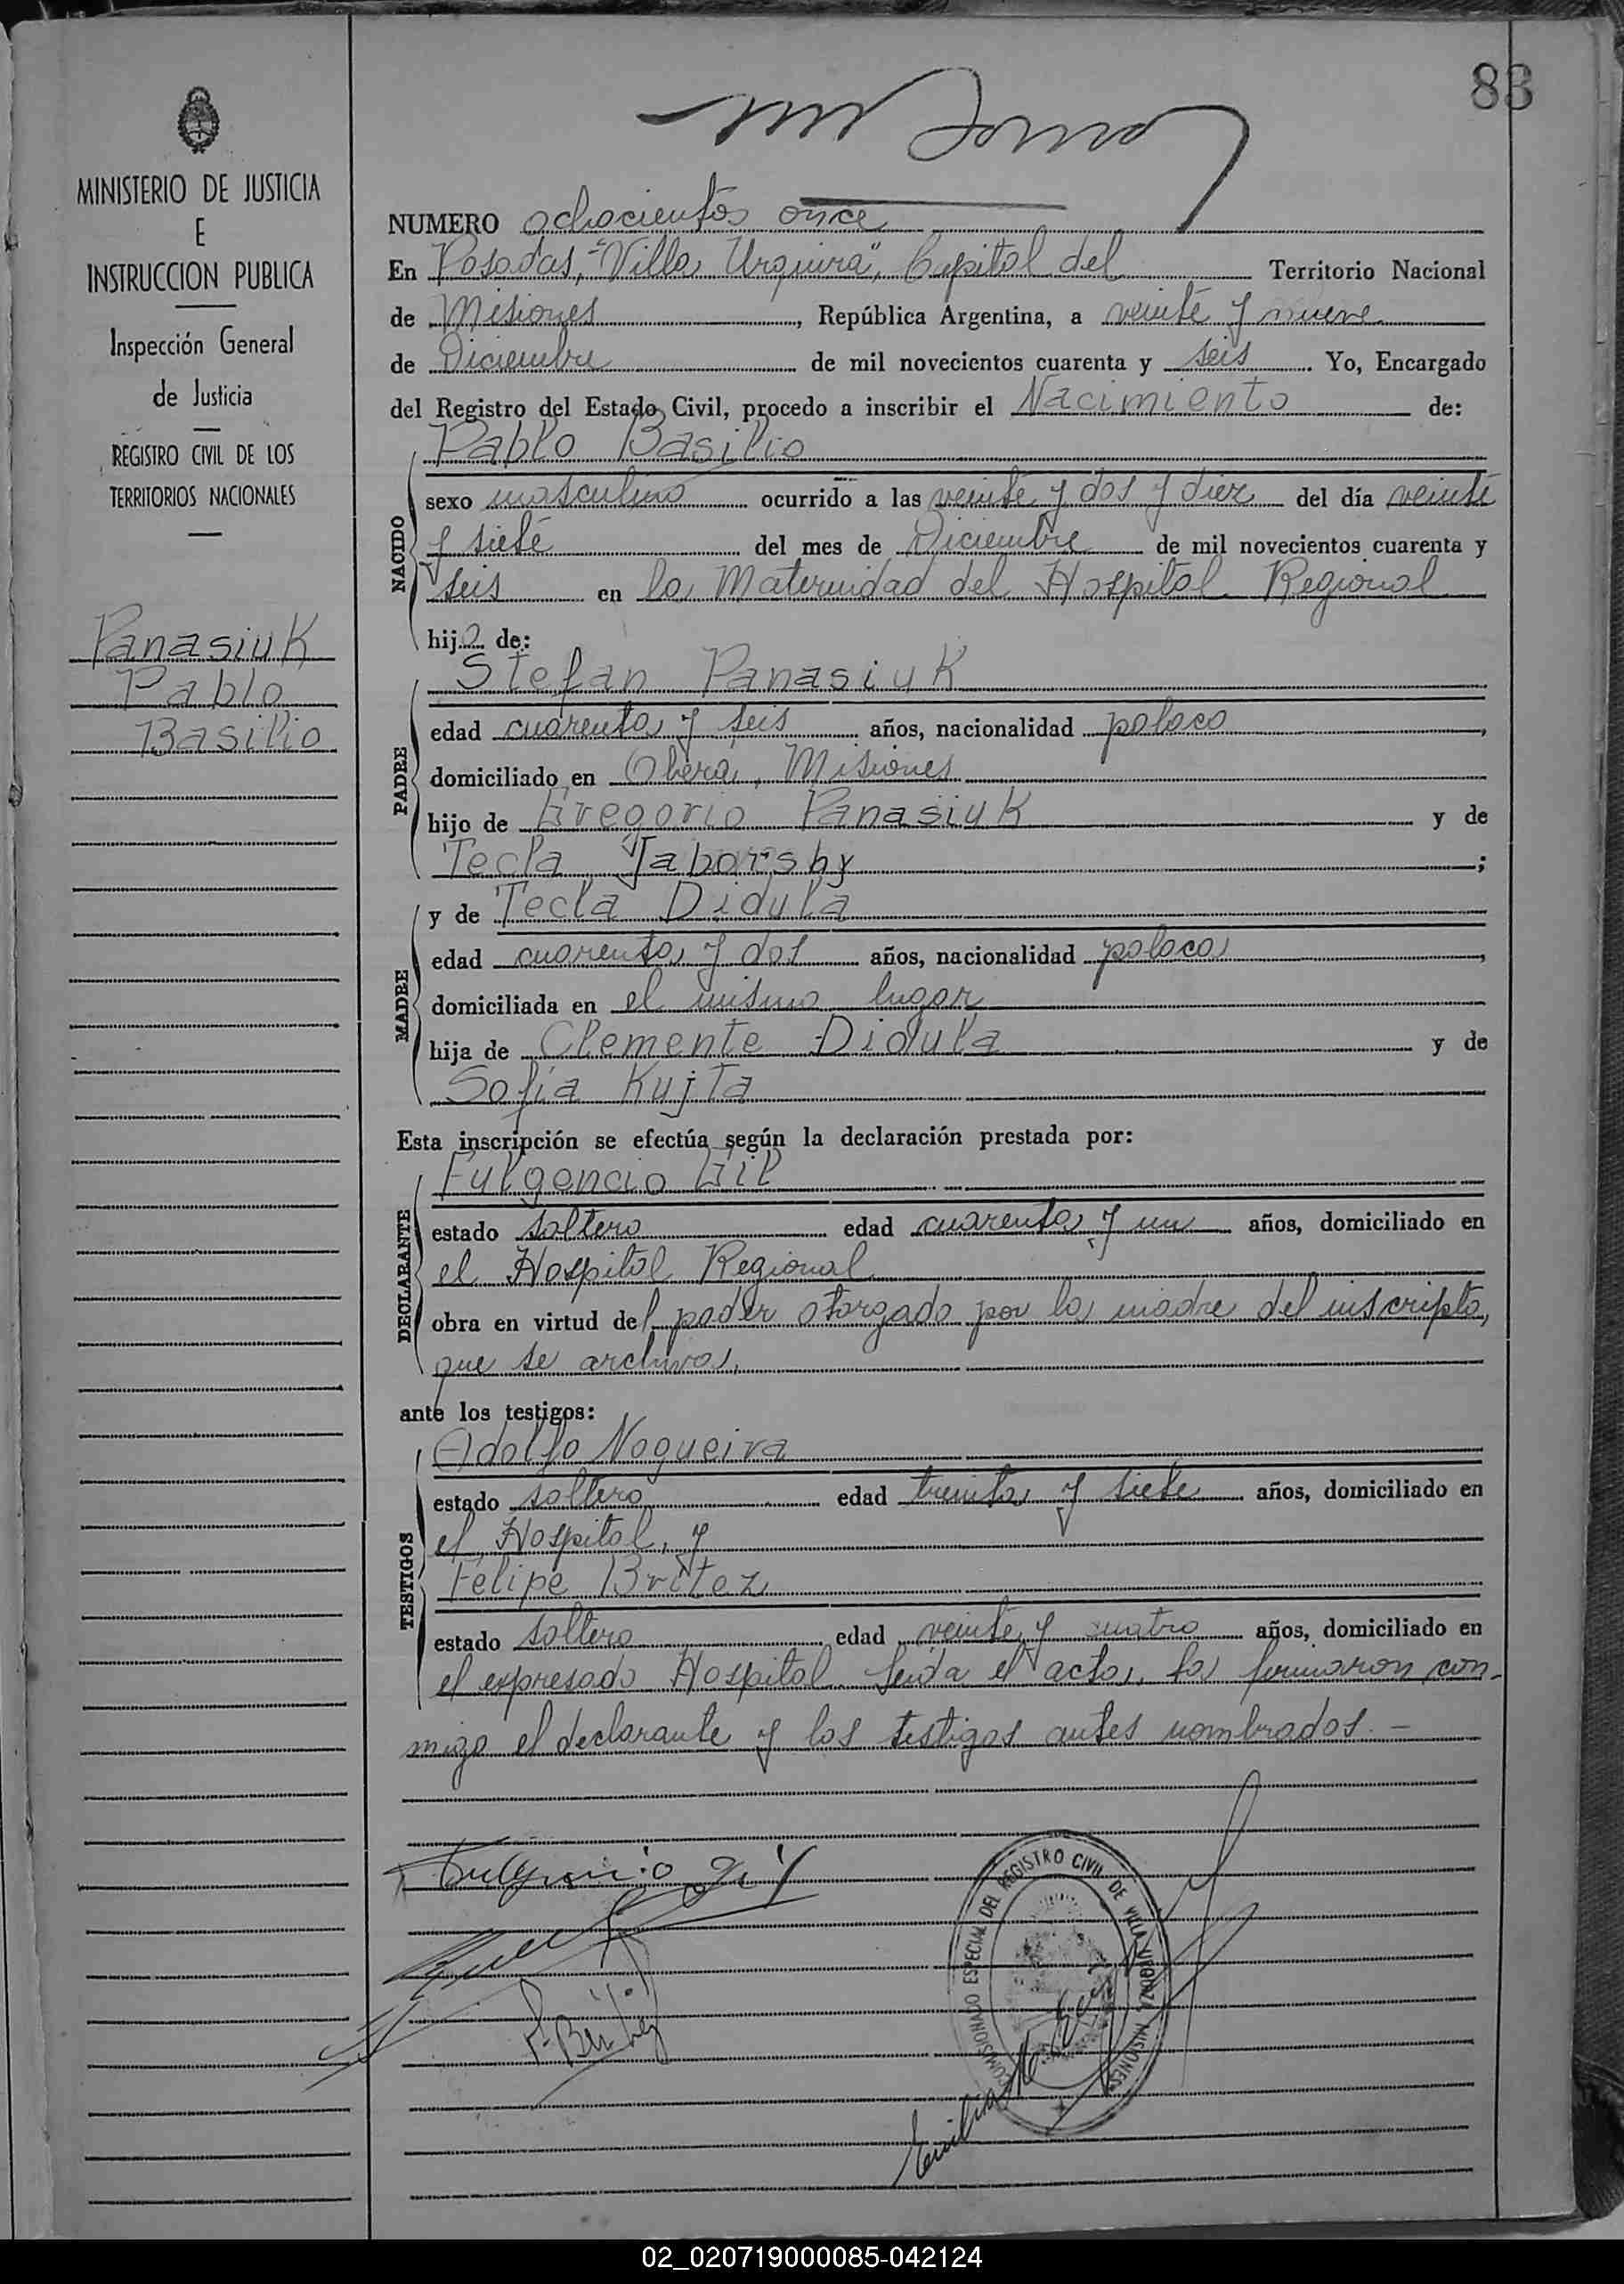 83
NUMERO ochocientos once
En Posadas, "Villa Urquiza", Capital del Territorio Nacional
de Misiones, República Argentina, a veinte y nueve
de Diciembre de mil novecientos cuarenta y seis Yo, Encargado
del Registro del Estado Civil, procedo a inscribir el Nacimiento de:
Pablo Basilio
NACIDO
sexo masculino ocurrido a las veinte y dos y diez del día veinte
y siete del mes de Diciembre de mil novecientos cuarenta y
seis en la Maternidad del Hospital Regional
hijo de:
Stefan Panasiuk
PADRE
edad cuarenta y seis años, nacionalidad polaco,
domiciliado en Oberá, Misiones
hijo de Gregorio Panasiuk y de
Tecla Jaborsby;
MADRE
y de Tecla Didula
edad cuarenta y dos años, nacionalidad polaca,
domiciliada en el mismo lugar
hija de Clemente Didula y de
Sofia Kujta
Esta inscripción se efectúa según la declaración prestada por:
Fulgencio Gil
DECLARANTE
estado soltero edad cuarenta y un años, domiciliado en
el Hospital Regional
obra en virtud del poder otorgado por la madre del inscripto,
que se archiva.
ante los testigos:
Adolfo Nogueira
TESTIGOS
estado soltero edad treinta y siete años, domiciliado en
el Hospital, y
Felipe Britez
estado soltero edad veinte y cuatro años, domiciliado en
el expresado Hospital. Leida el acta, la firmaron con-
migo el declarante y los testigos antes nombrados.-
Fulgencio Gil
F. Britez
COMISIONADO ESPECIAL DEL REGISTRO CIVIL DE VILLA URQUIZA MISIONES
MINISTERIO DE JUSTICIA
E
INSTRUCCION PUBLICA
Inspección General
de Justicia
REGISTRO CIVIL DE LOS
TERRITORIOS NACIONALES
Panasiuk
Pablo
Basilio
02_020719000085-042124